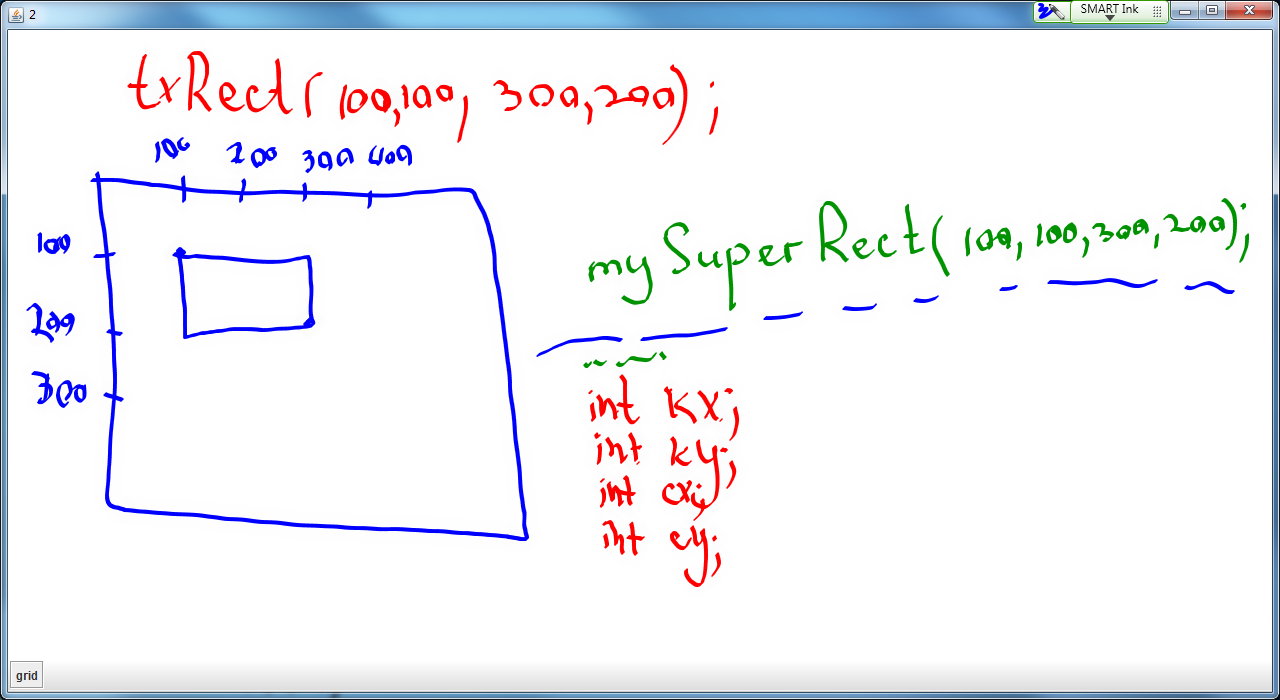 2
SMART Ink
txRect(100,100, 300,200);
100 200 300 400
100
200
300
mySuperRect(100, 100, 300, 200);
int kx;
int ky;
int cx;
int cy;
grid